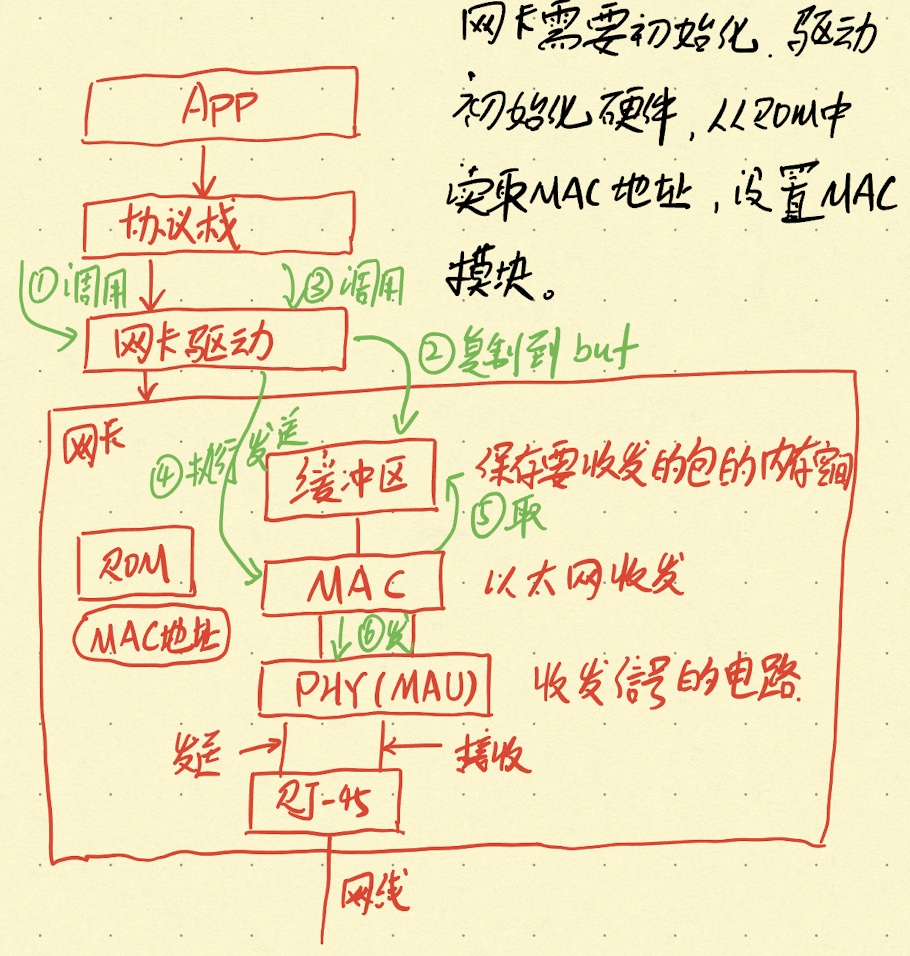 网卡需要初始化.驱动
初始化硬件,从ROM中
读取MAC地址,设置MAC
模块。
APP
协议栈
①调用
③调用
网卡驱动
②复制到buf
网卡
④执行发送
缓冲区
保存要收发的包的内存空间
⑤取
ROM
MAC
以太网收发
MAC地址
⑥发
PHY(MAU)
收发信号的电路.
发送
接收
RJ-45
网线